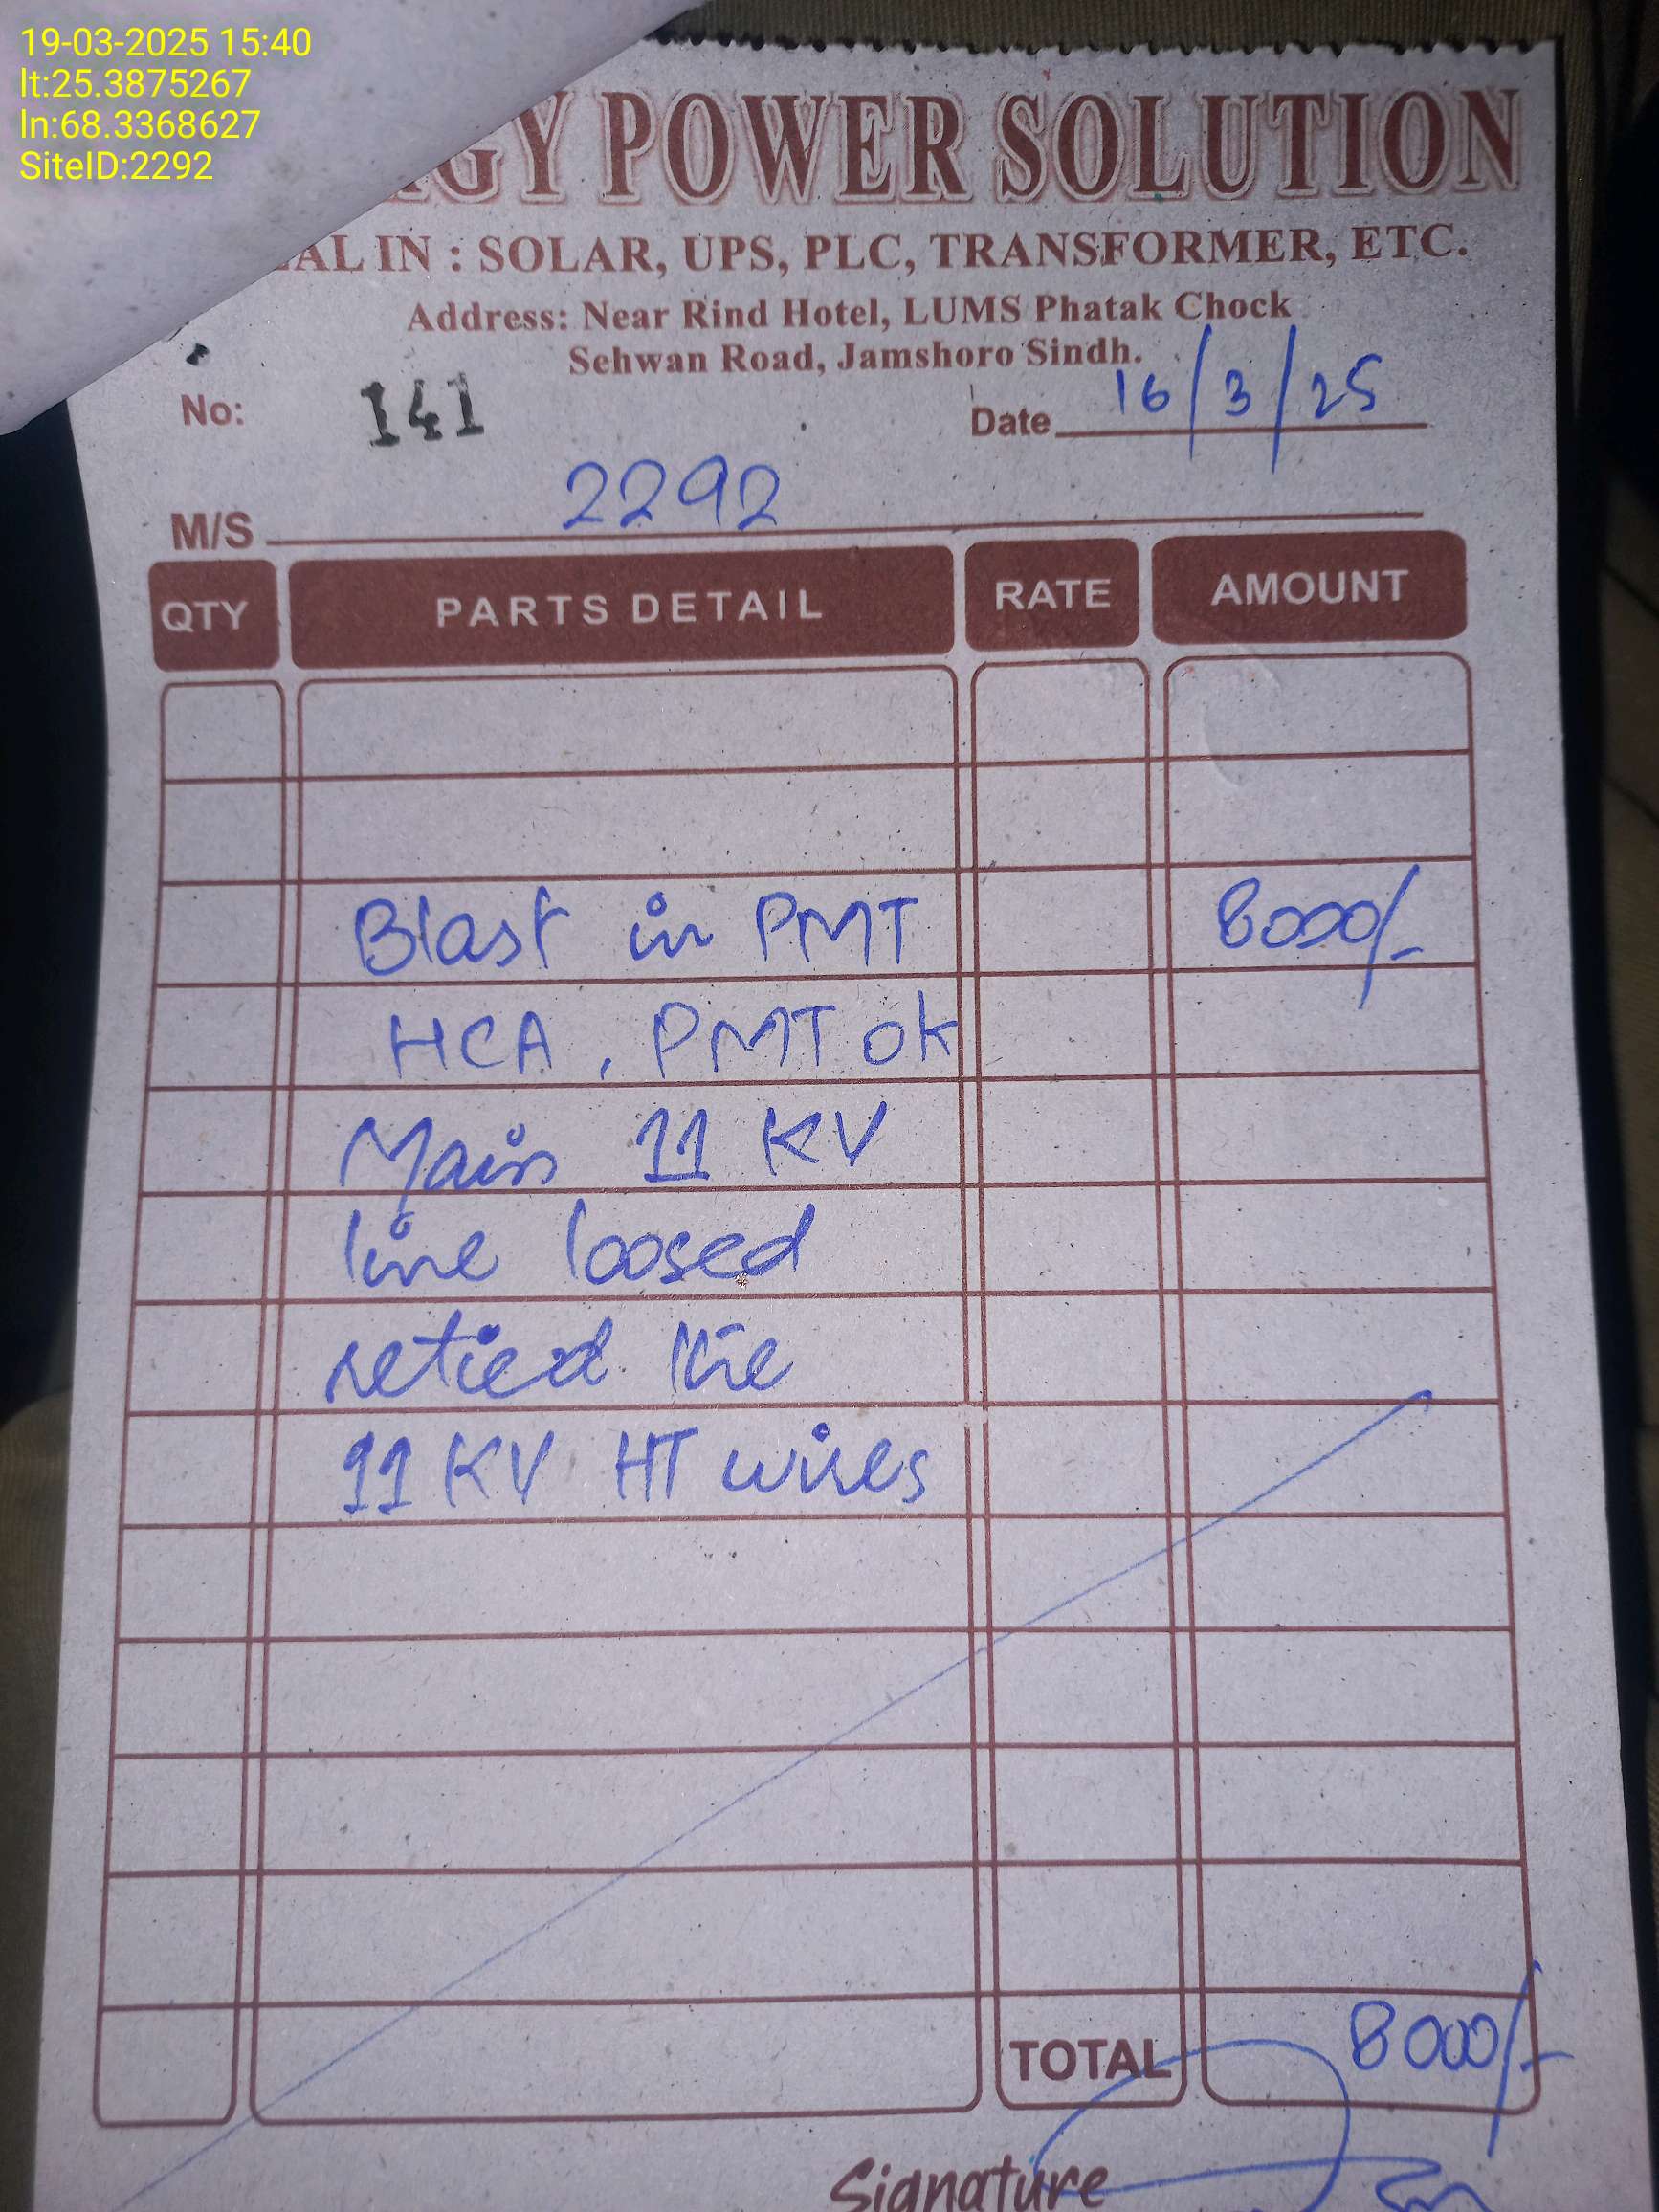 19-03-2025 15:40
lt:25.3875267
ln:68.3368627
SiteID:2292
POWER SOLUTION
IN : SOLAR, UPS, PLC, TRANSFORMER, ETC.
Address: Near Rind Hotel, LUMS Phatak Chock
Sehwan Road, Jamshoro Sindh.
No: 141 Date 16/3/25
M/S 2292
QTY PARTS DETAIL RATE AMOUNT
Blast in PMT 8000/-
HCA, PMT ok
Main 11 KV
line loosed
retied the
11 KV HT wires
TOTAL 8000/-
Signature